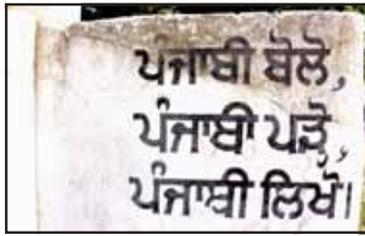 ਪੰਜਾਬੀ ਬੋਲੋ,
ਪੰਜਾਬੀ ਪੜ੍ਹੋ,
ਪੰਜਾਬੀ ਲਿਖੋ।